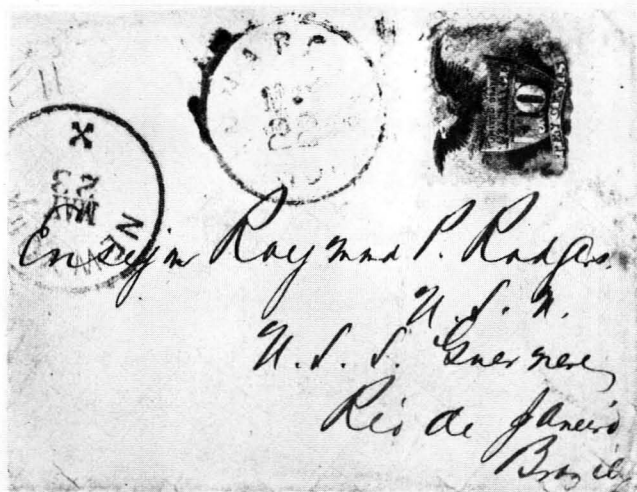 NEW
MAR
23
10
Ensign Raymond P. Rodgers.
U. S. N.
U. S. S. Guerriere
Rio de Janeiro
Brazil